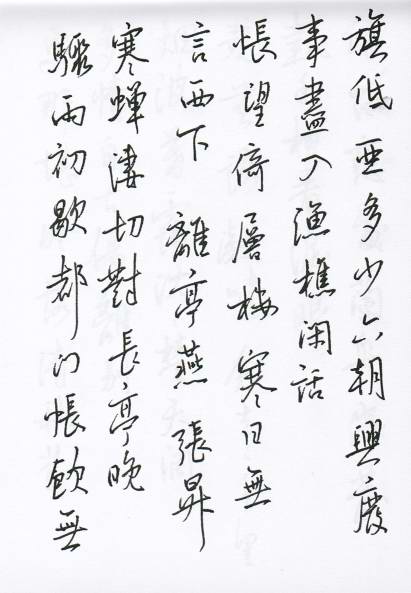 旗低亞多少六朝興廢
事盡入漁樵閑話
悵望倚層樓寒日無
言西下 離亭燕 張昇
寒蟬淒切對長亭晚
驟雨初歇都門帳飲無